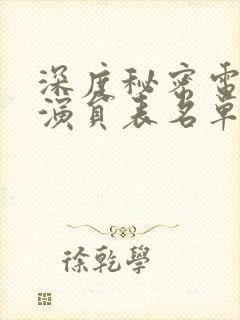 深度秘密電
演員表名單
徐乾學